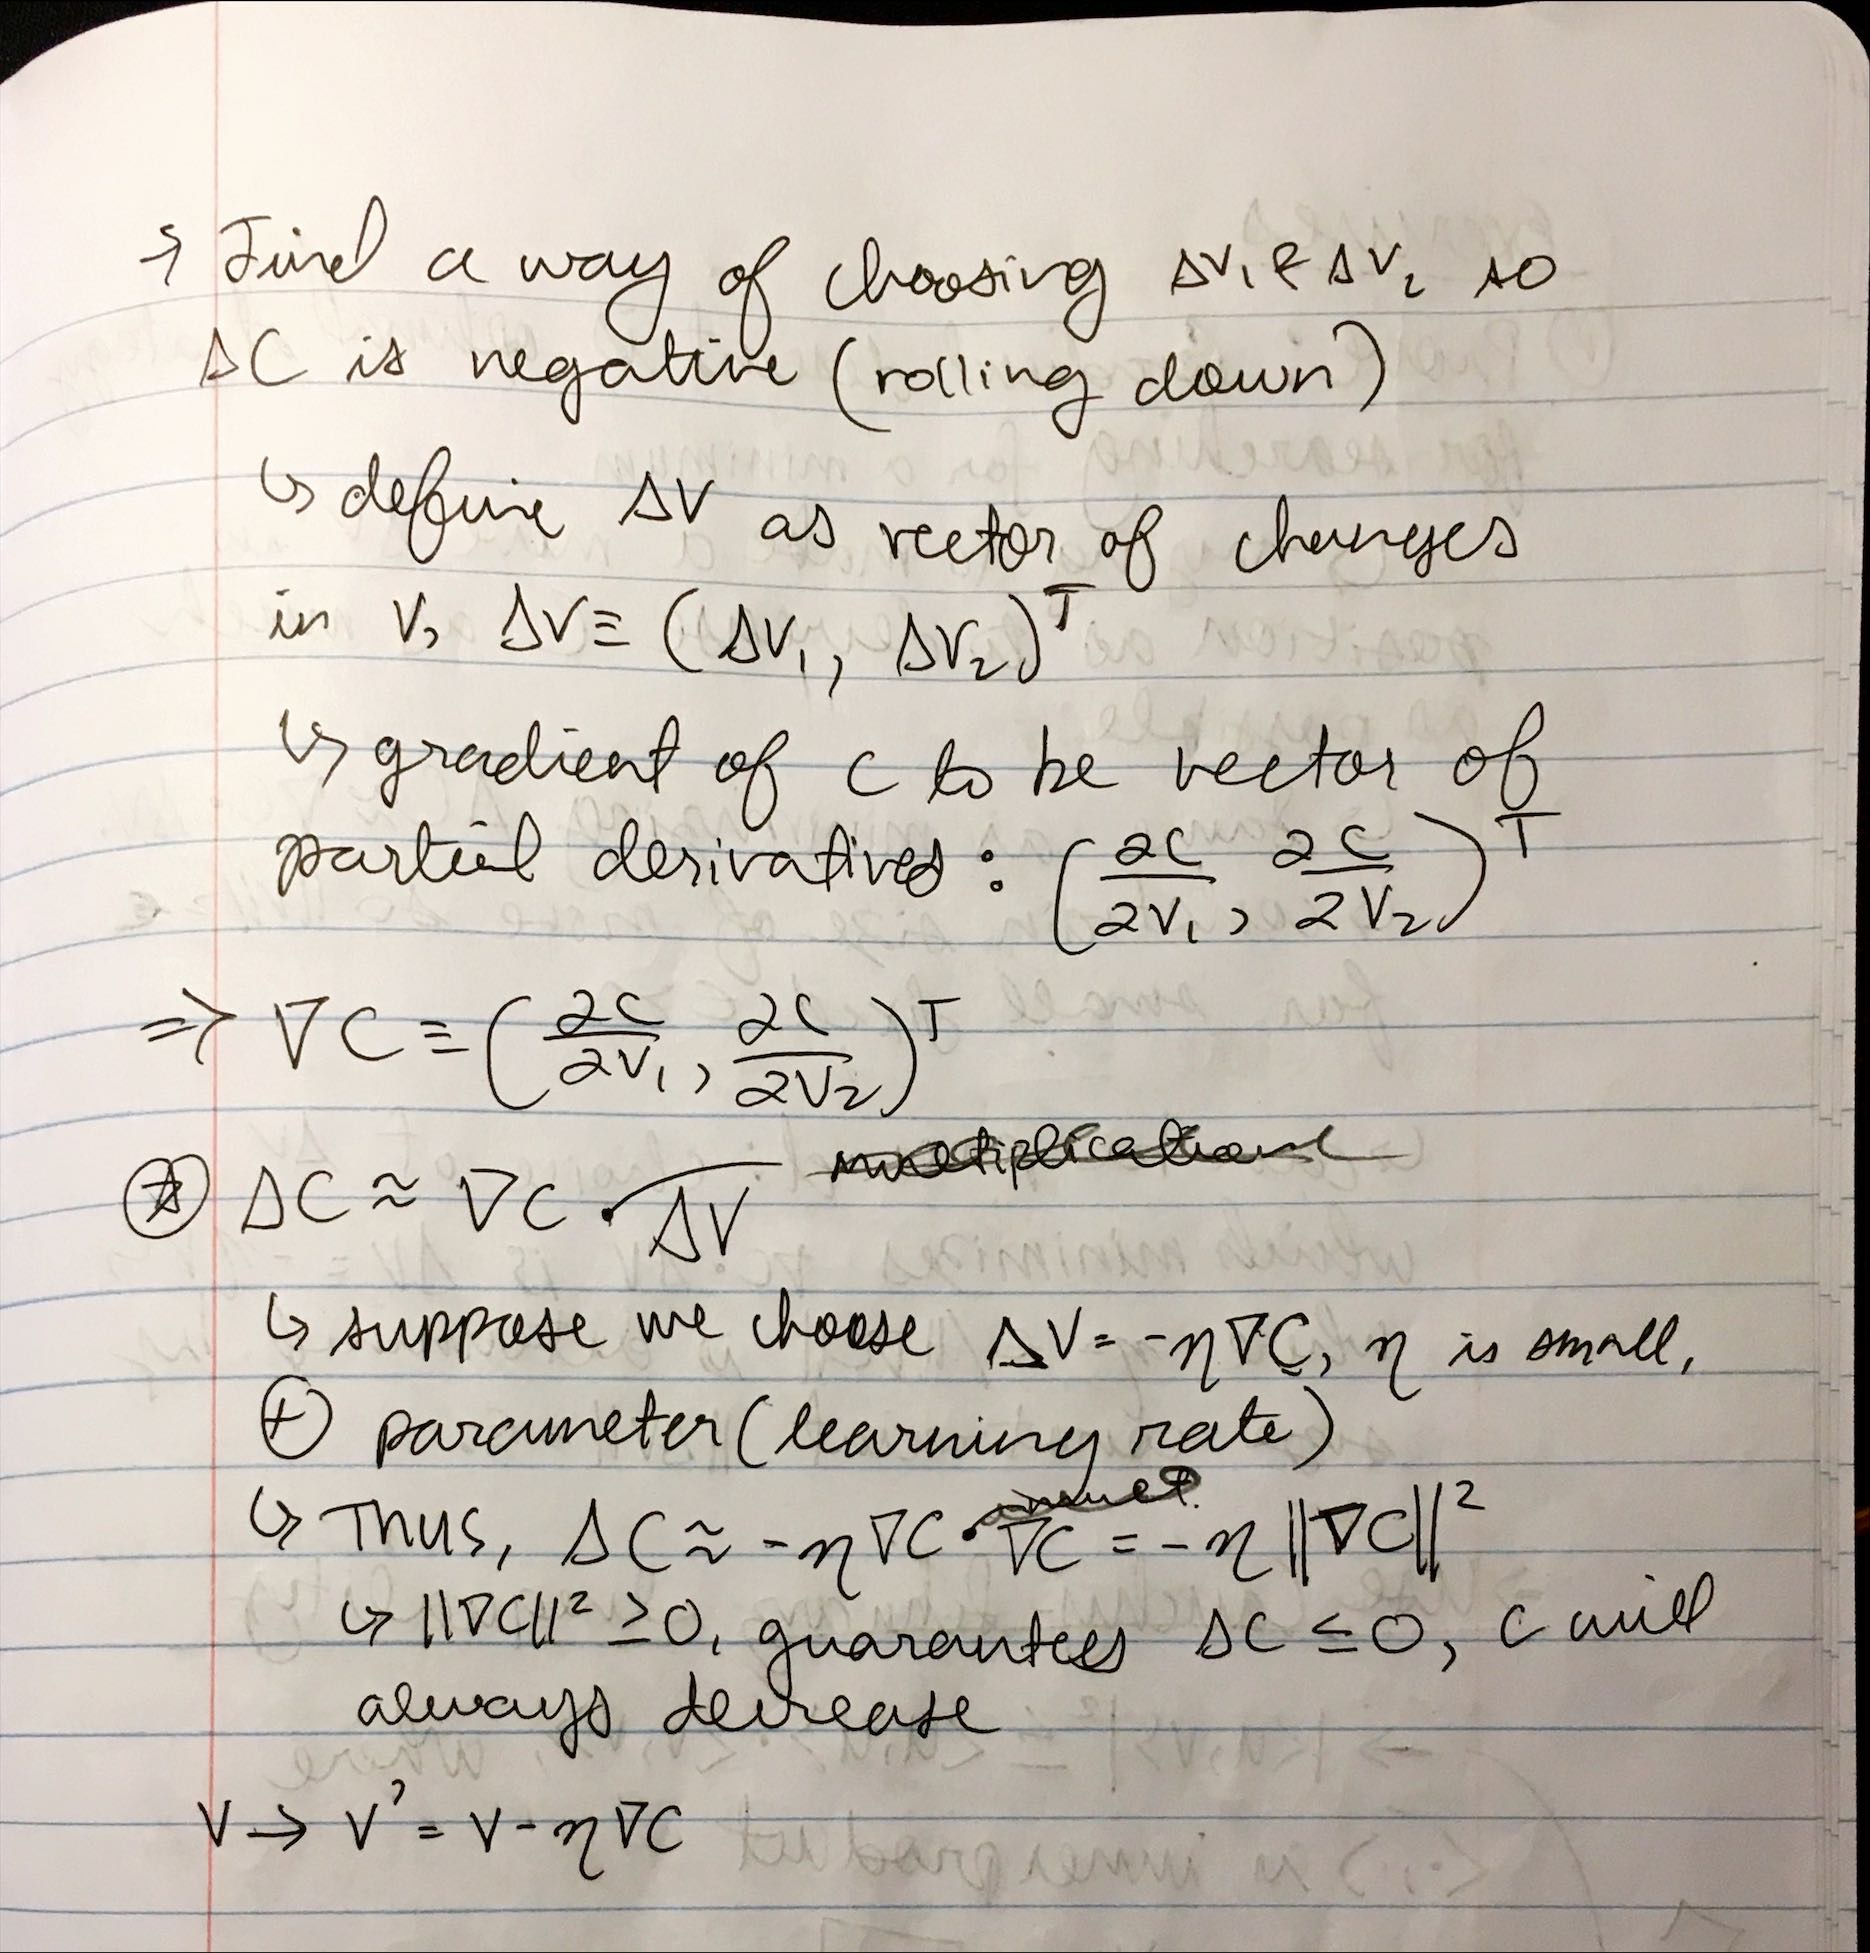 → Find a way of choosing Δv₁ & Δv₂ so
ΔC is negative (rolling down)
↳ define ΔV as vector of changes
in V, ΔV ≡ (ΔV₁, ΔV₂)ᵀ
↳ gradient of C to be vector of
partial derivatives: (∂C/∂V₁, ∂C/∂V₂)ᵀ
⇒ ∇C ≡ (∂C/∂V₁, ∂C/∂V₂)ᵀ
multiplication
ΔC ≈ ∇C · ΔV
↳ suppose we choose ΔV = -η∇C, η is small,
⊕ parameter (learning rate)
↳ Thus, ΔC ≈ -η∇C · ∇C = -η||∇C||²
↳ ||∇C||² ≥ 0, guarantees ΔC ≤ 0, C will
always decrease
V → V' = V - η∇C